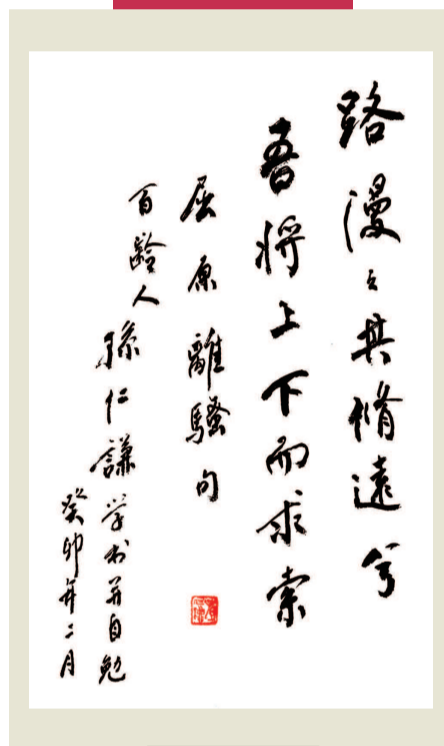 路漫〻其脩遠兮
吾将上下而求索
屈原離騷句
百齡人
孫仁謙学书并自勉
癸卯年二月